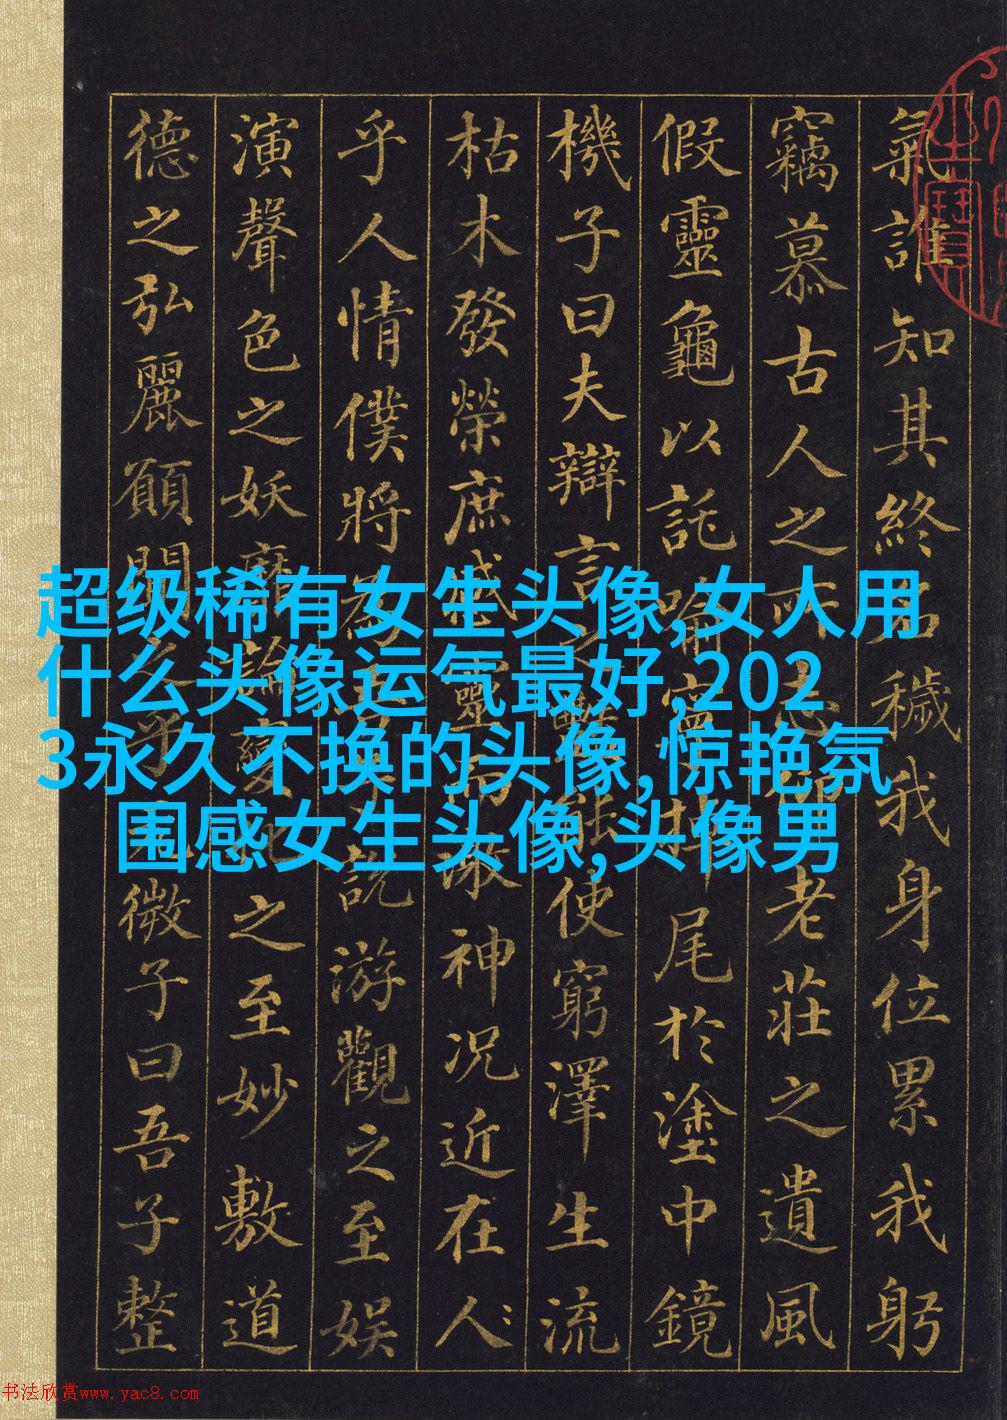 氣誰知其終名穢我身位累我躬
竊慕古人之所志仰老莊之遺風
假靈龜以託喻寧掉尾於塗中鏡
機子曰夫辯言之艷能使窮澤生流
枯木發榮庶感靈而激神況近在人
乎人情僕將為君子說游觀之至娛
演聲色之妖靡論變化之至妙敷道
德之弘麗願聞之乎玄微子曰吾子整
超级稀有女生头像,女人用
什么头像运气最好,202
3永久不换的头像,惊艳氛
围感女生头像,头像男
书法欣赏www.yac8.com